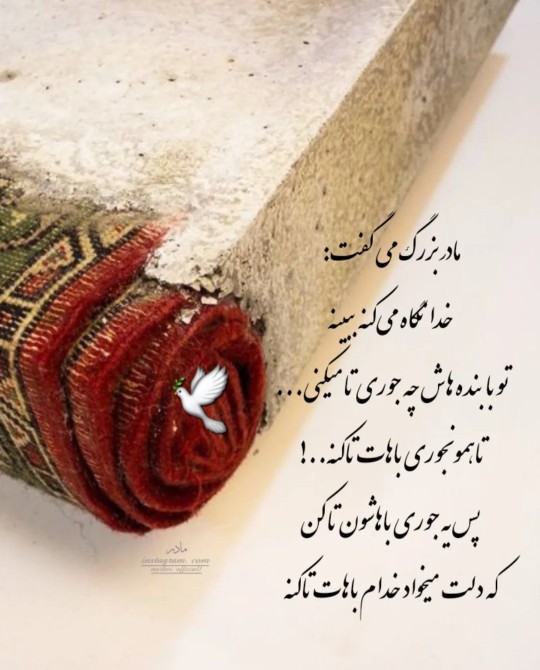 مادربزرگ می گفت:
خدا نگاه می کنه ببینه
تو با بنده هاش چه جوری تا میکنی...
تا همونجوری باهات تا کنه..!
پس یه جوری باهاشون تا کن
که دلت میخواد خدام باهات تا کنه
مادر
instagram. com